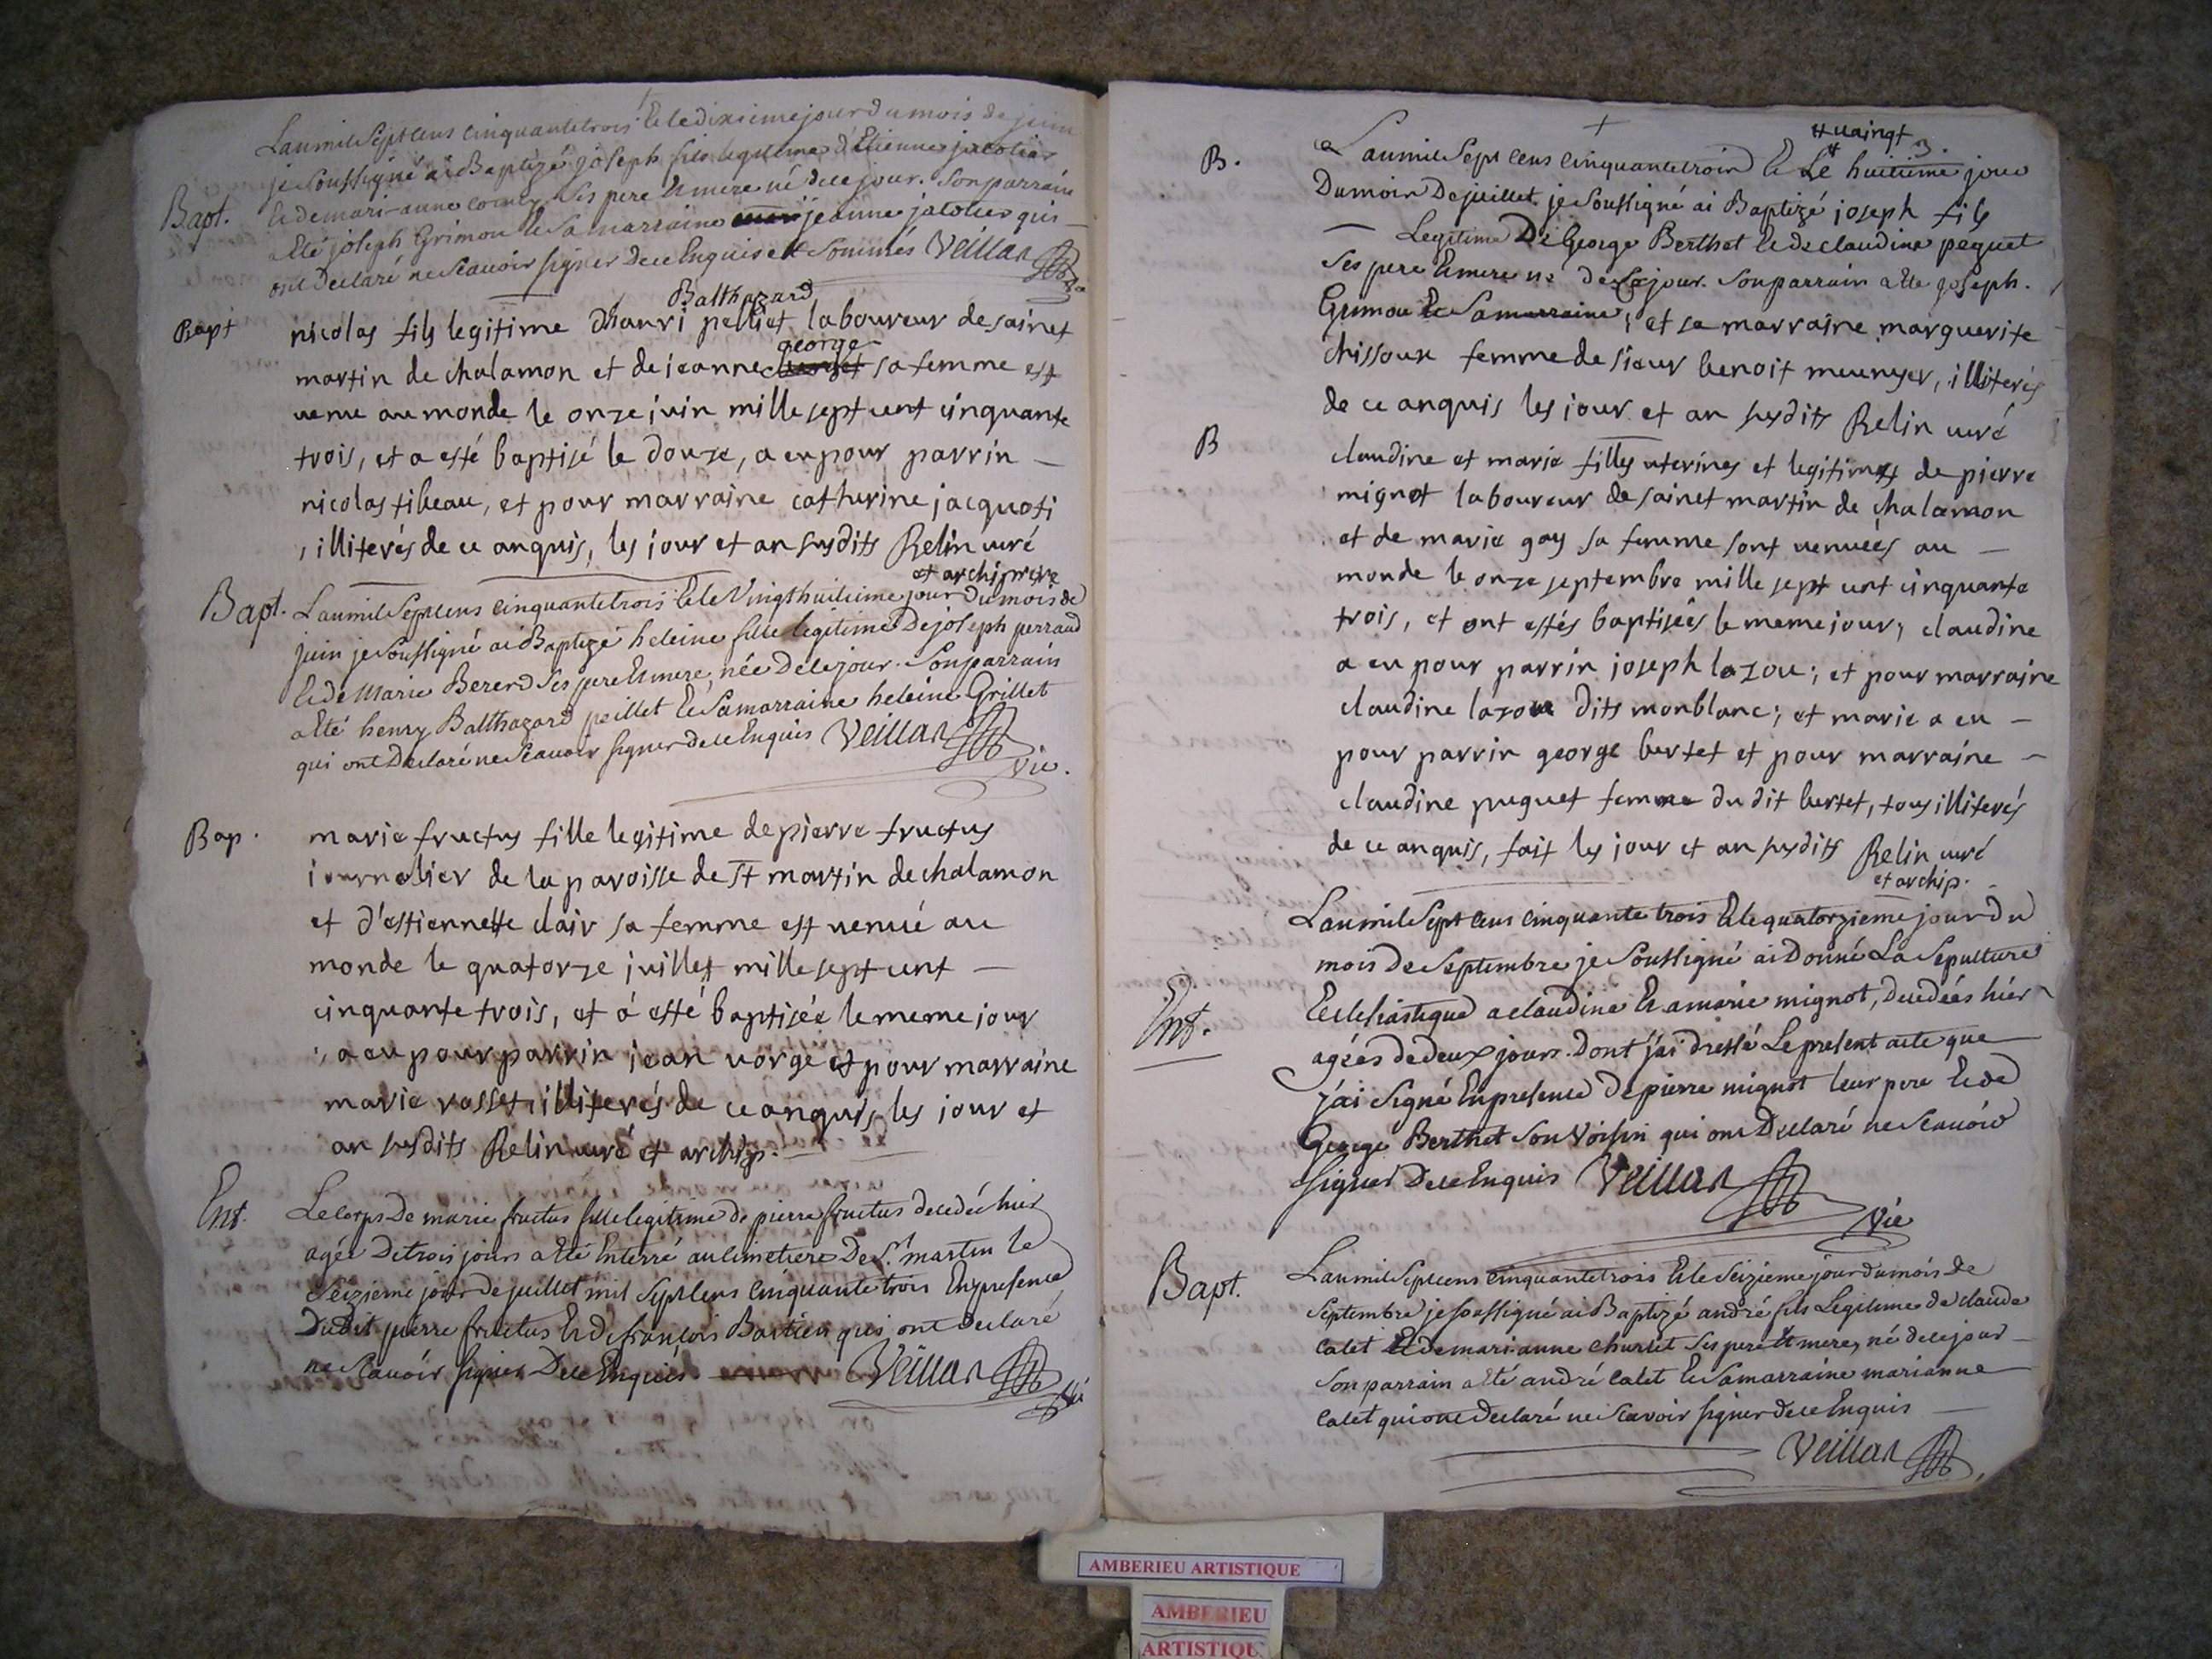 L'an mil Sept Cens Cinquante trois Et le dixieme jour du mois de juin
je Soussigné ai Baptizé joseph fils legitime d'Etienne jacolier
Bapt. Et de mari-anne ses pere Et mere né de ce jour. Son parrain
a Eté joseph Grimon Et Sa marraine jeanne jacolier qui
ont Declaré ne Scauoir signer De ce Enquis et Sommés Veillar
Balthazard
Bapt nicolas fils legitime d'hanri pelliet laboureur de sainct
george
martin de chalamon et de jeanne sa femme est
venu au monde le onze juin mille sept cent cinquante
trois, et a esté baptisé le douze, a eu pour parrin
nicolas tibeau, et pour marraine catherine jacquoti
, illiterés de ce anquis, les jour et an susdits Relin curé
et archiprere
Bapt. L'an mil Sept Cens Cinquante trois Et le Vingt huitieme jour du mois de
juin je Soussigné ai Baptizé heleine fille legitime De joseph perraud
Et de Marie Bererd Ses pere Et mere, née De ce jour. Son parrain
a Eté henry Balthazard peillet Et Sa marraine heleine Grillet
qui ont Declaré ne Scauoir signer de ce Enquis Veillar
Vic.
Bap. marie fructus fille legitime de pierre fructus
journalier de la paroisse de st martin de chalamon
et d'estiennette clair sa femme est venuë au
monde le quatorze juillet mille sept cent
cinquante trois, et a esté baptisée le meme jour
, a eu pour parrin jean vorge et pour marraine
marie rosset, illiterés de ce anquis, les jour et
an susdits Relin curé et archip.
Ent. Le Corps De marie fructus fille legitime de pierre fructus decedée hier
agée De trois jours a Eté Enterré au Cimetiere De St. martin le
Seizieme jour de juillet mil Sept Cens Cinquante trois En presence
Dudit pierre fructus Et De francois Bartien qui ont Declaré
ne Scauoir signer De ce Enquis. Veillar
Vic
# vaingt
B. L'an mil Sept Cens Cinquante trois Et Le # huitieme jour
Du mois De juillet je Soussigné ai Baptizé joseph fils
Legitime De George Berthet Et de claudine peguet
Ses pere Et mere né de ce jour. Son parrain a Eté joseph.
Grimon Et Sa marraine, et sa marraine marguerite
chissoux femme de sieur benoit meunyer, illiterés
de ce anquis les jour et an susdits Relin curé
B claudine et marie filles uterines et legitimes de pierre
mignot laboureur de sainct martin de chalamon
et de marie gay sa femme sont venuës au
monde le onze septembre mille sept cent cinquante
trois, et ont estés baptisées le meme jour, claudine
a eu pour parrin joseph lazou; et pour marraine
claudine lazou dits monblanc; et marie a eu
pour parrin george bertet et pour marraine
claudine puguet femme du dit bertet, tous illiterés
de ce anquis, fait les jour et an susdits Relin curé
et archip.
L'an mil Sept Cens Cinquante trois Et le quatorzieme jour Du
mois De Septembre je Soussigné ai Donné La Sepulture
Ecclesiastique a claudine Et a marie mignot, decedées hier
Ent. agées de deux jours. Dont j'ai dressé Le present acte que
j'ai Signé En presence De pierre mignot leur pere Et de
George Berthet Son Voisin qui ont Declaré ne Scauoir
signer De ce Enquis Veillar
Vic
Bapt. L'an mil Sept Cens Cinquante trois Et le Seizieme jour du mois de
Septembre je soussigné ai Baptizé andré fils Legitime de claude
Calet Et de mari-anne churlet Ses pere Et mere, né de ce jour
Son parrain a Eté andré Calet Et Sa marraine marianne
Calet qui ont Declaré ne Scavoir signer de ce Enquis
Veillar
AMBERIEU ARTISTIQUE
AMBERIEU
ARTISTIQU